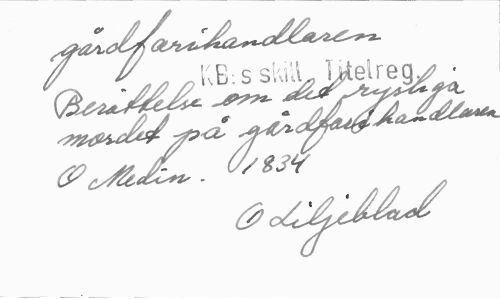 gårdfarihandlaren
KB:s skill. Titelreg.
Berättelse om det rysliga
mordet på gårdfarihandlaren
O Medin. 1834
O Liljeblad